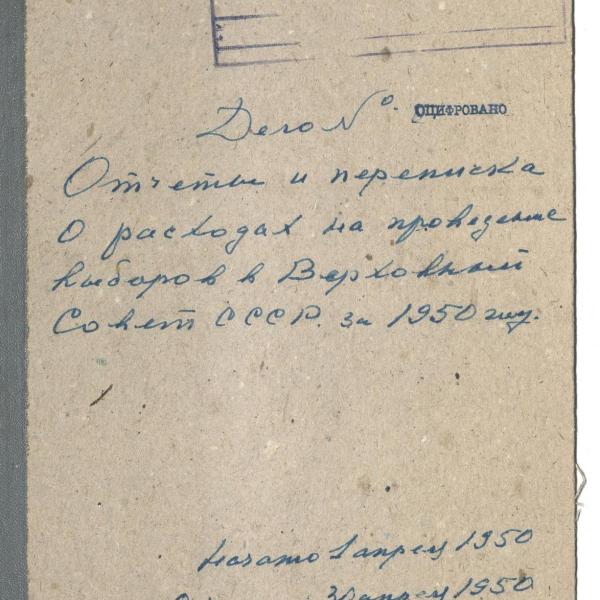 Дело №. ОЦИФРОВАНО
Отчеты и переписка
о расходах на проведение
выборов в Верховный
Совет СССР. за 1950 год.
Начато 1 апреля 1950
30 апреля 1950